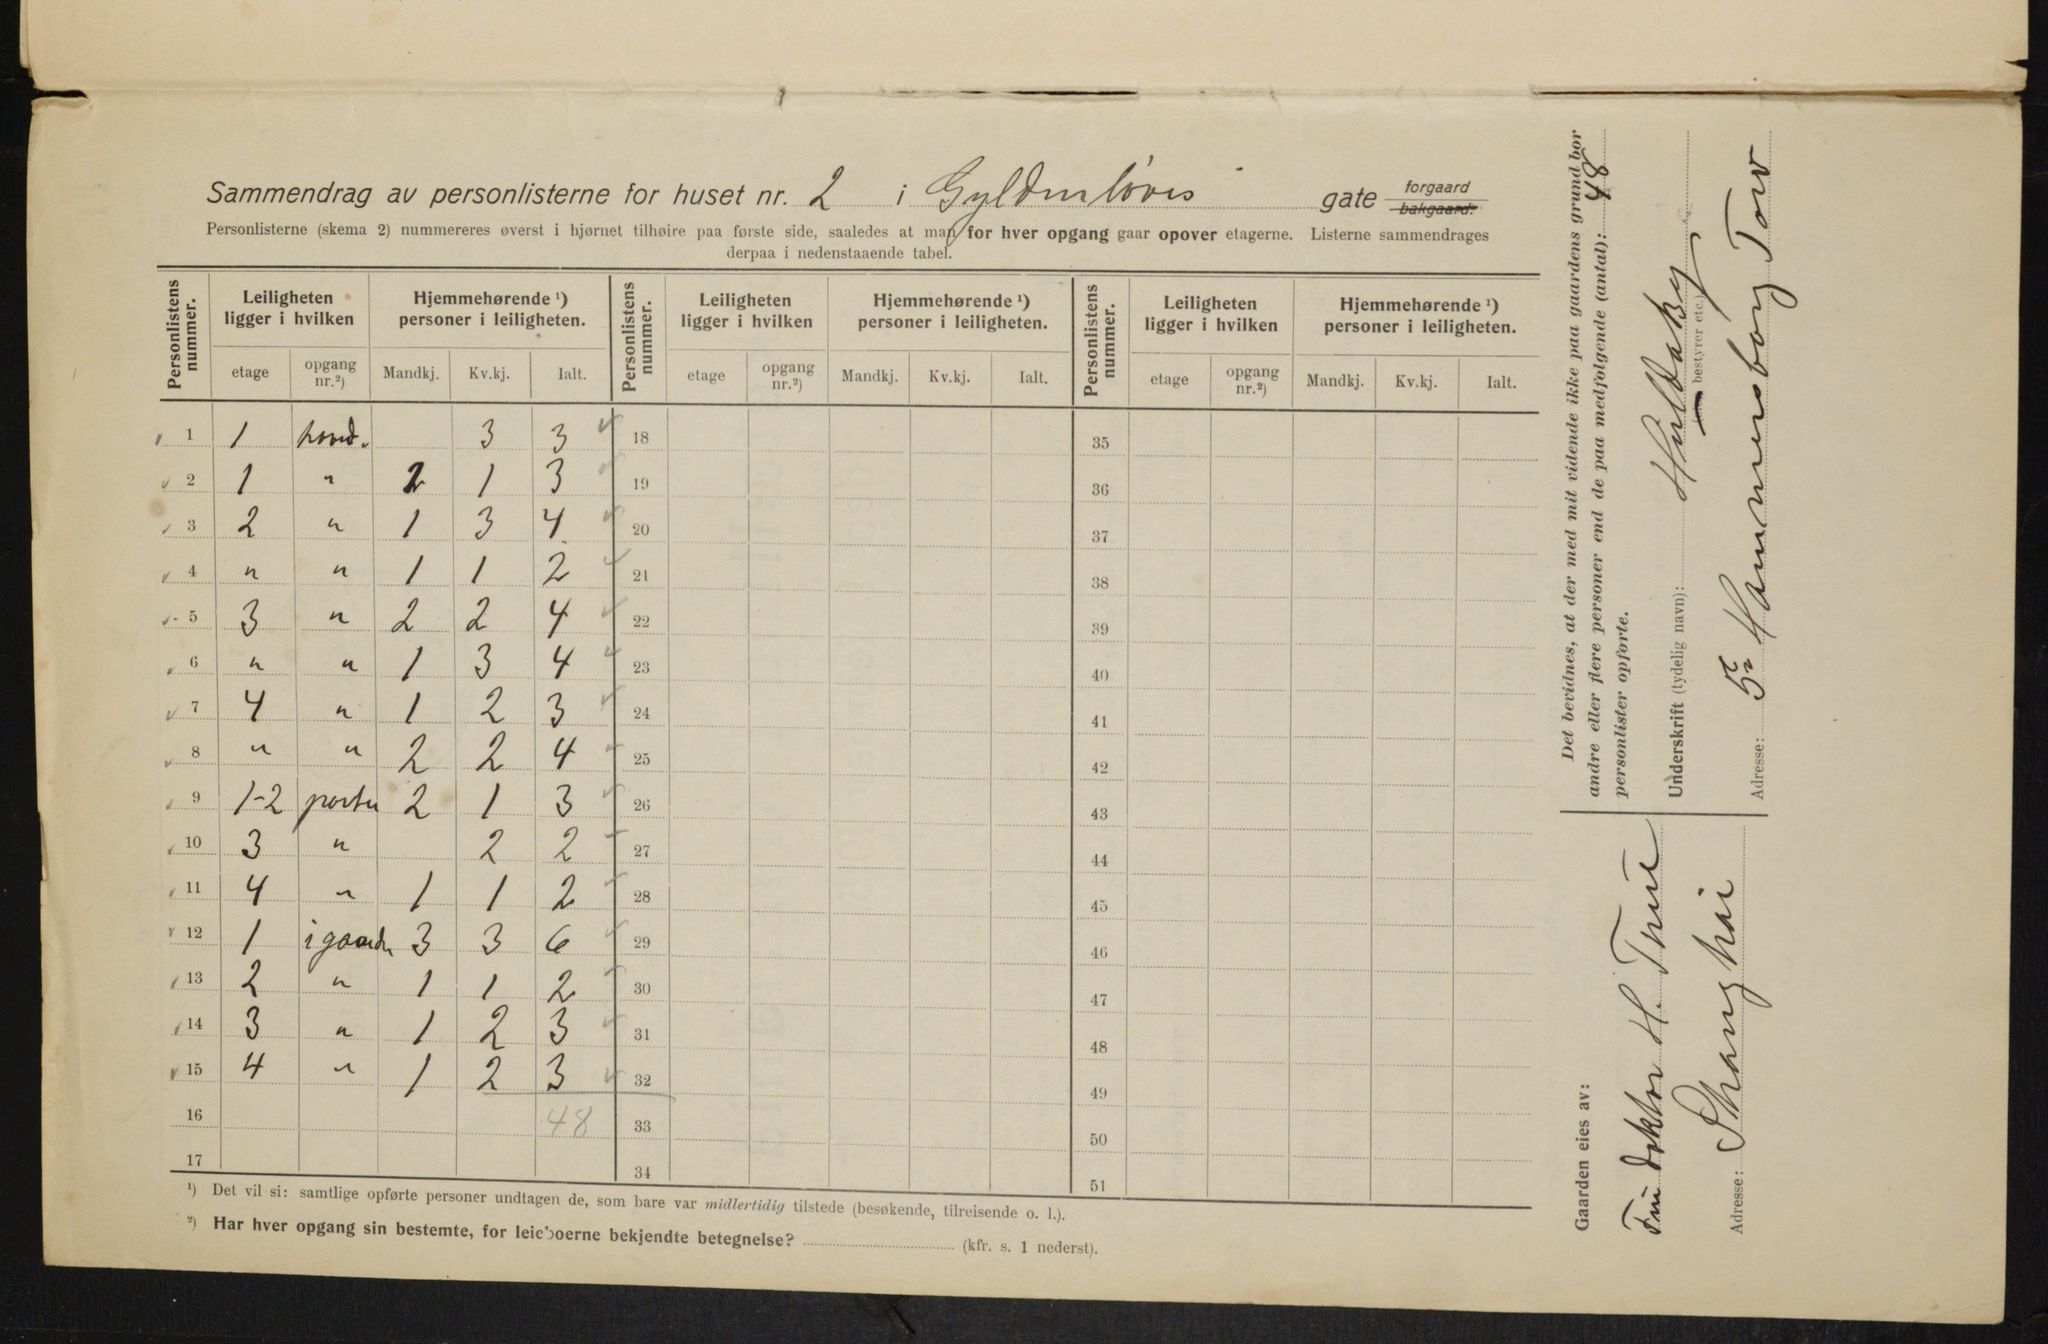 Sammendrag av personlisterne for huset nr. 2 i Gyldenløves gate forgaard bakgaard.
Personlisterne (skema 2) nummereres øverst i hjørnet tilhøire paa første side, saaledes at man for hver opgang gaar opover etagerne. Listerne sammendrages
derpaa i nedenstaaende tabel.
Personlistens nummer. Leiligheten ligger i hvilken Hjemmehørende ¹) personer i leiligheten. Personlistens nummer. Leiligheten ligger i hvilken Hjemmehørende ¹) personer i leiligheten. Personlistens nummer. Leiligheten ligger i hvilken Hjemmehørende ¹) personer i leiligheten.
etage opgang nr.²) Mandkj. Kv.kj. Ialt. etage opgang nr.²) Mandkj. Kv.kj. Ialt. etage opgang nr.²) Mandkj. Kv.kj. Ialt.
1 1 hoved. 3 3 18 35
2 1 " 2 1 3 19 36
3 2 " 1 3 4 20 37
4 " " 1 1 2 21 38
5 3 " 2 2 4 22 39
6 " " 1 3 4 23 40
7 4 " 1 2 3 24 41
8 " " 2 2 4 25 42
9 1-2 porten 2 1 3 26 43
10 3 " 2 2 27 44
11 4 " 1 1 2 28 45
12 1 i gaarden 3 3 6 29 46
13 2 " 1 1 2 30 47
14 3 " 1 2 3 31 48
15 4 " 1 2 3 32 49
16 48 33 50
17 34 51
¹) Det vil si: samtlige opførte personer undtagen de, som bare var midlertidig tilstede (besøkende, tilreisende o. l.).
²) Har hver opgang sin bestemte, for leieboerne bekjendte betegnelse? (kfr. s. 1 nederst).
Det bevidnes, at der med mit vidende ikke paa gaardens grund bor
andre eller flere personer end de paa medfølgende (antal): 48
personlister opførte.
Underskrift (tydelig navn):
bestyrer etc.)
Adresse: Hammersborg Torv
Gaarden eies av:
Fru doktor H.
Adresse: Shanghai